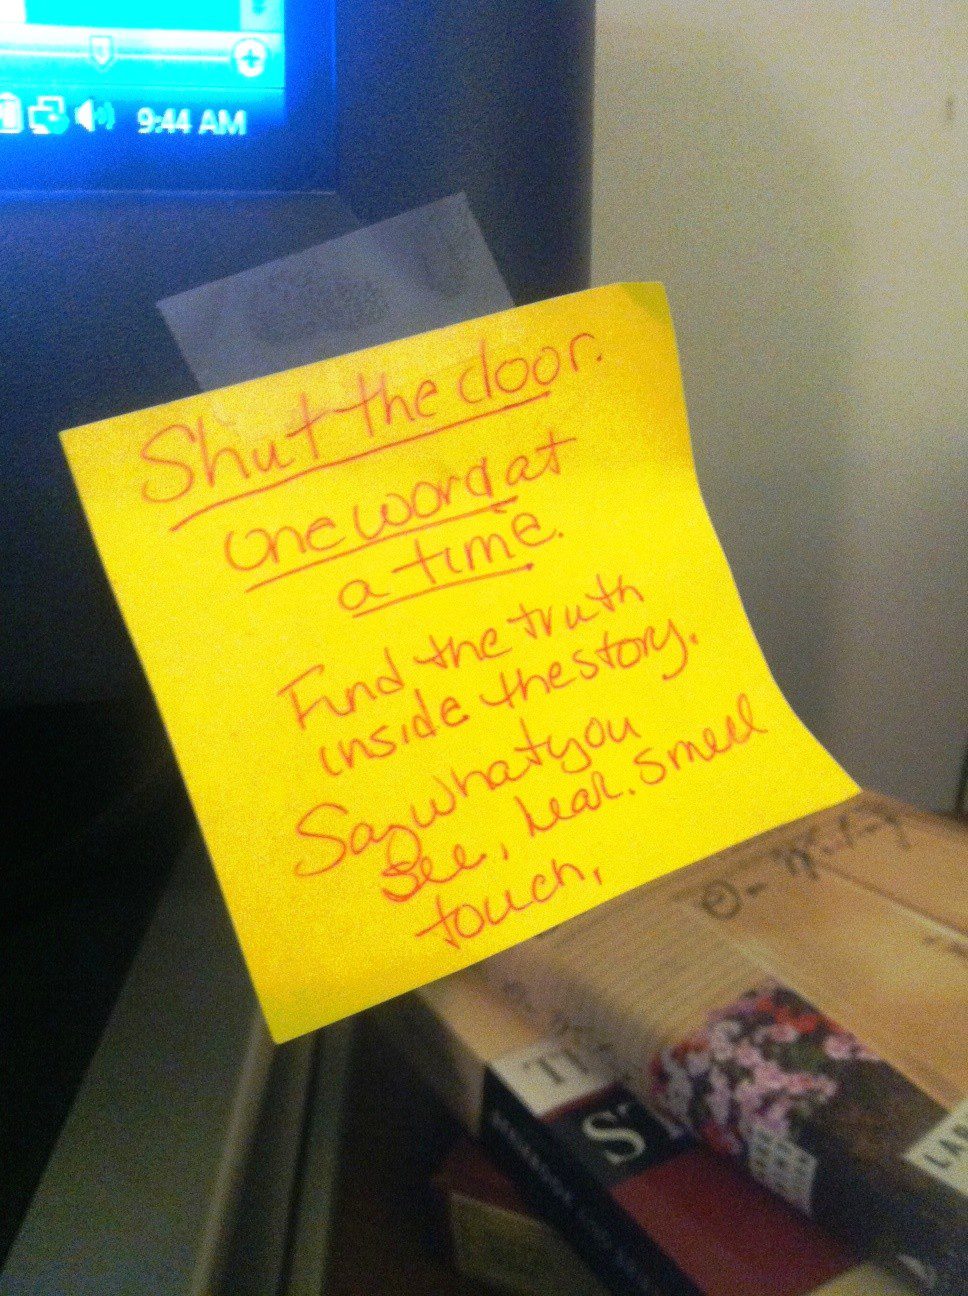 9:44 AM
Shut the door.
one word at
a time.
Find the truth
inside the story.
Say what you
see, hear. smell
touch,
S
LAR